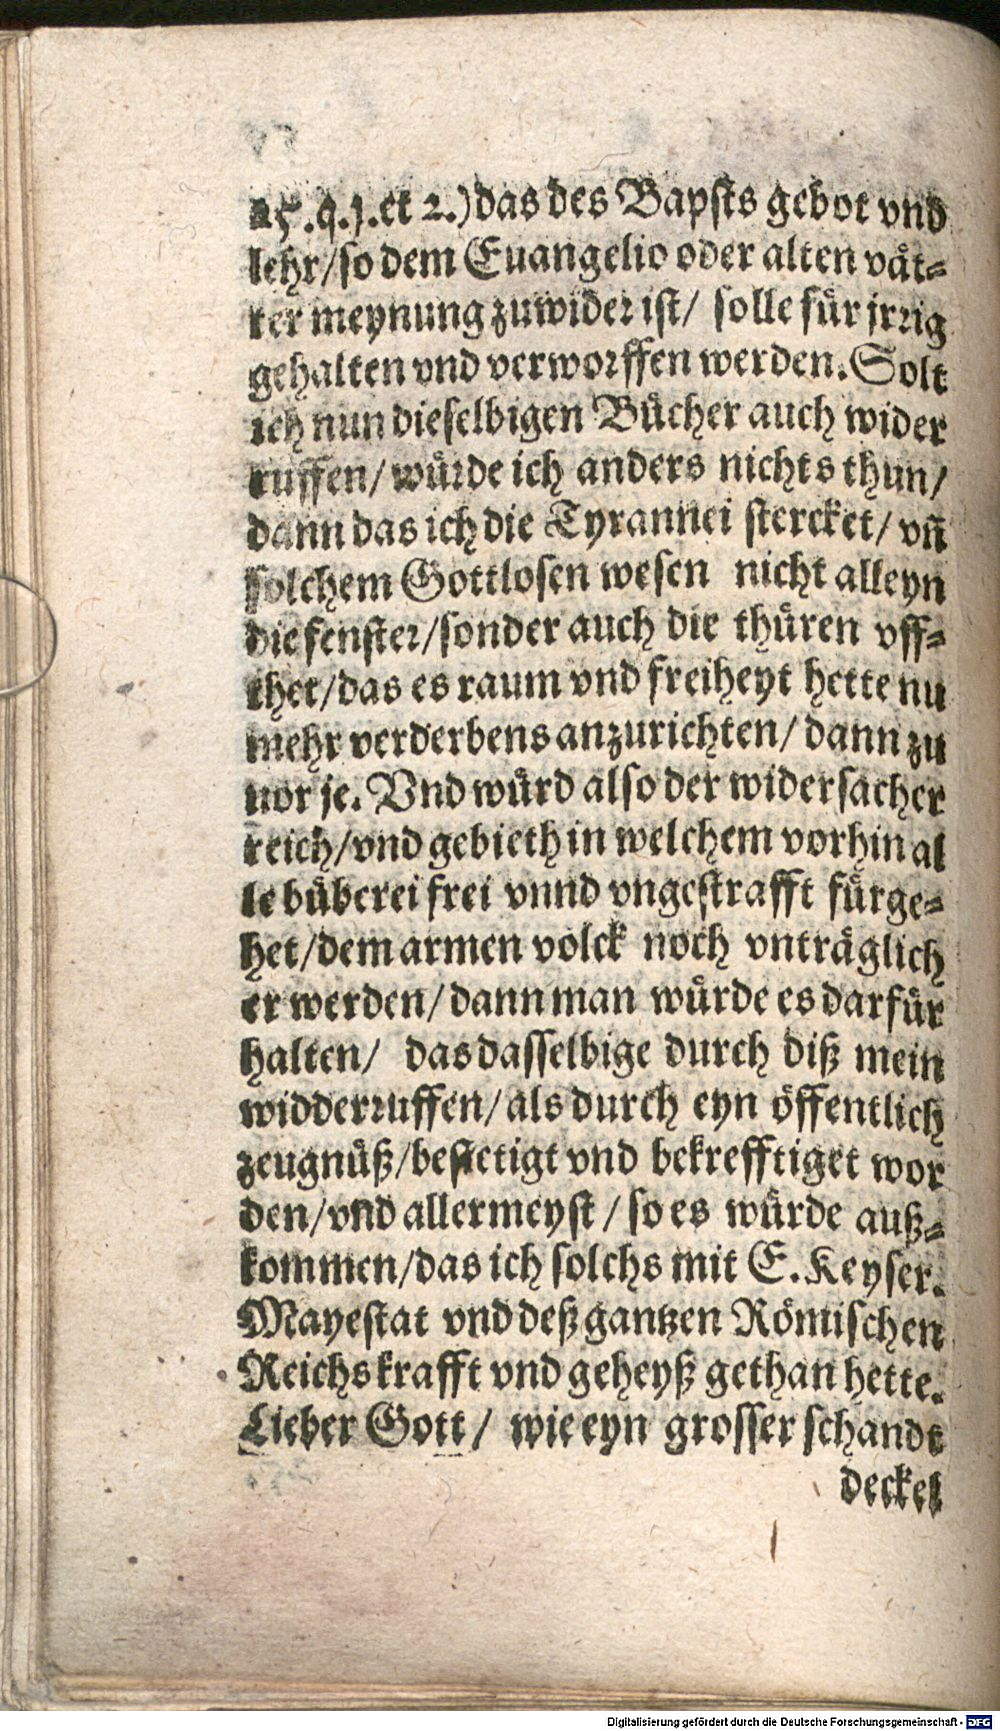 25.q.1.et 2.) das des Bapsts gebot vnd
lehr/so dem Euangelio oder alten vät⸗
ter meynung zuwider ist/ solle für jrrig
gehalten vnd verworffen werden. Solt
ich nun dieselbigen Bücher auch wider
ruffen/ würde ich anders nichts thun/
dann das ich die Tyrannei stercket/ vñ
solchem Gottlosen wesen nicht alleyn
die fenster/sonder auch die thüren vff⸗
thet/das es raum vnd freiheyt hette nu
mehr verderbens anzurichten/ dann zu
uor je. Vnd würd also der widersacher
reich/vnd gebieth in welchem vorhin al
le büberei frei vnnd vngestrafft fürge⸗
het/dem armen volck noch vnträglich
er werden/ dann man würde es darfür
halten/ das dasselbige durch diß mein
widderruffen/ als durch eyn öffentlich
zeugnüß/bestetigt vnd bekrefftiget wor
den/vnd allermeyst / so es würde auß⸗
kommen/das ich solchs mit E. Keyser.
Mayestat vnd deß gantzen Römischen
Reichs krafft vnd geheyß gethan hette.
Lieber Gott / wie eyn grosser schandt
deckel
Digitalisierung gefördert durch die Deutsche Forschungsgemeinschaft - DFG